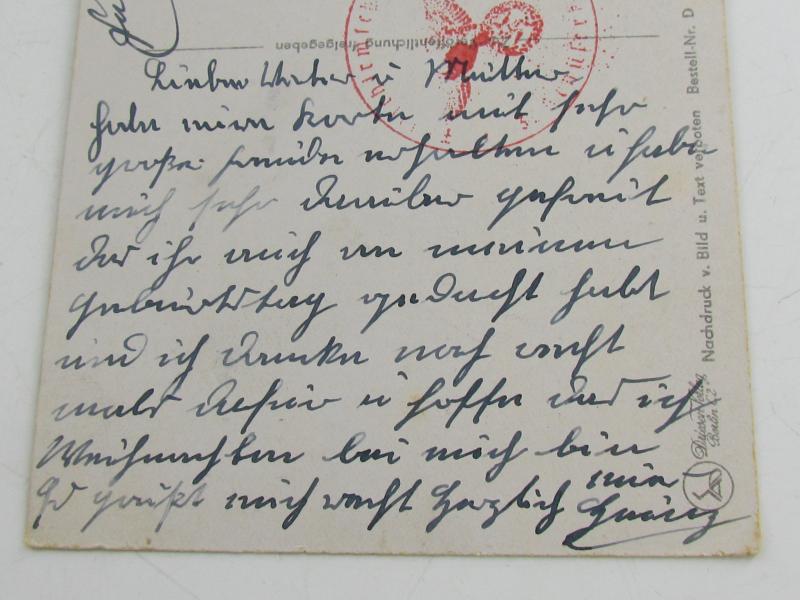 zur Veröffentlichung freigegeben
Lieber Vater u Mutter
habe eure Karte mit sehr
große freude erhalten u habe
mich sehr darüber gefreut
das ihr auch an meinem
Geburtstag gedacht habt
und ich danke noch recht
mals dafür u hoffe das ich
Weihnachten bei euch bin
Es grüßt euch recht herzlich euer
Nachdruck v. Bild u. Text verboten Bestell-Nr. D